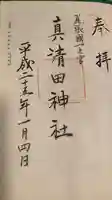 奉拝
尾張國一之宮
真清田神社
平成二十五年一月四日